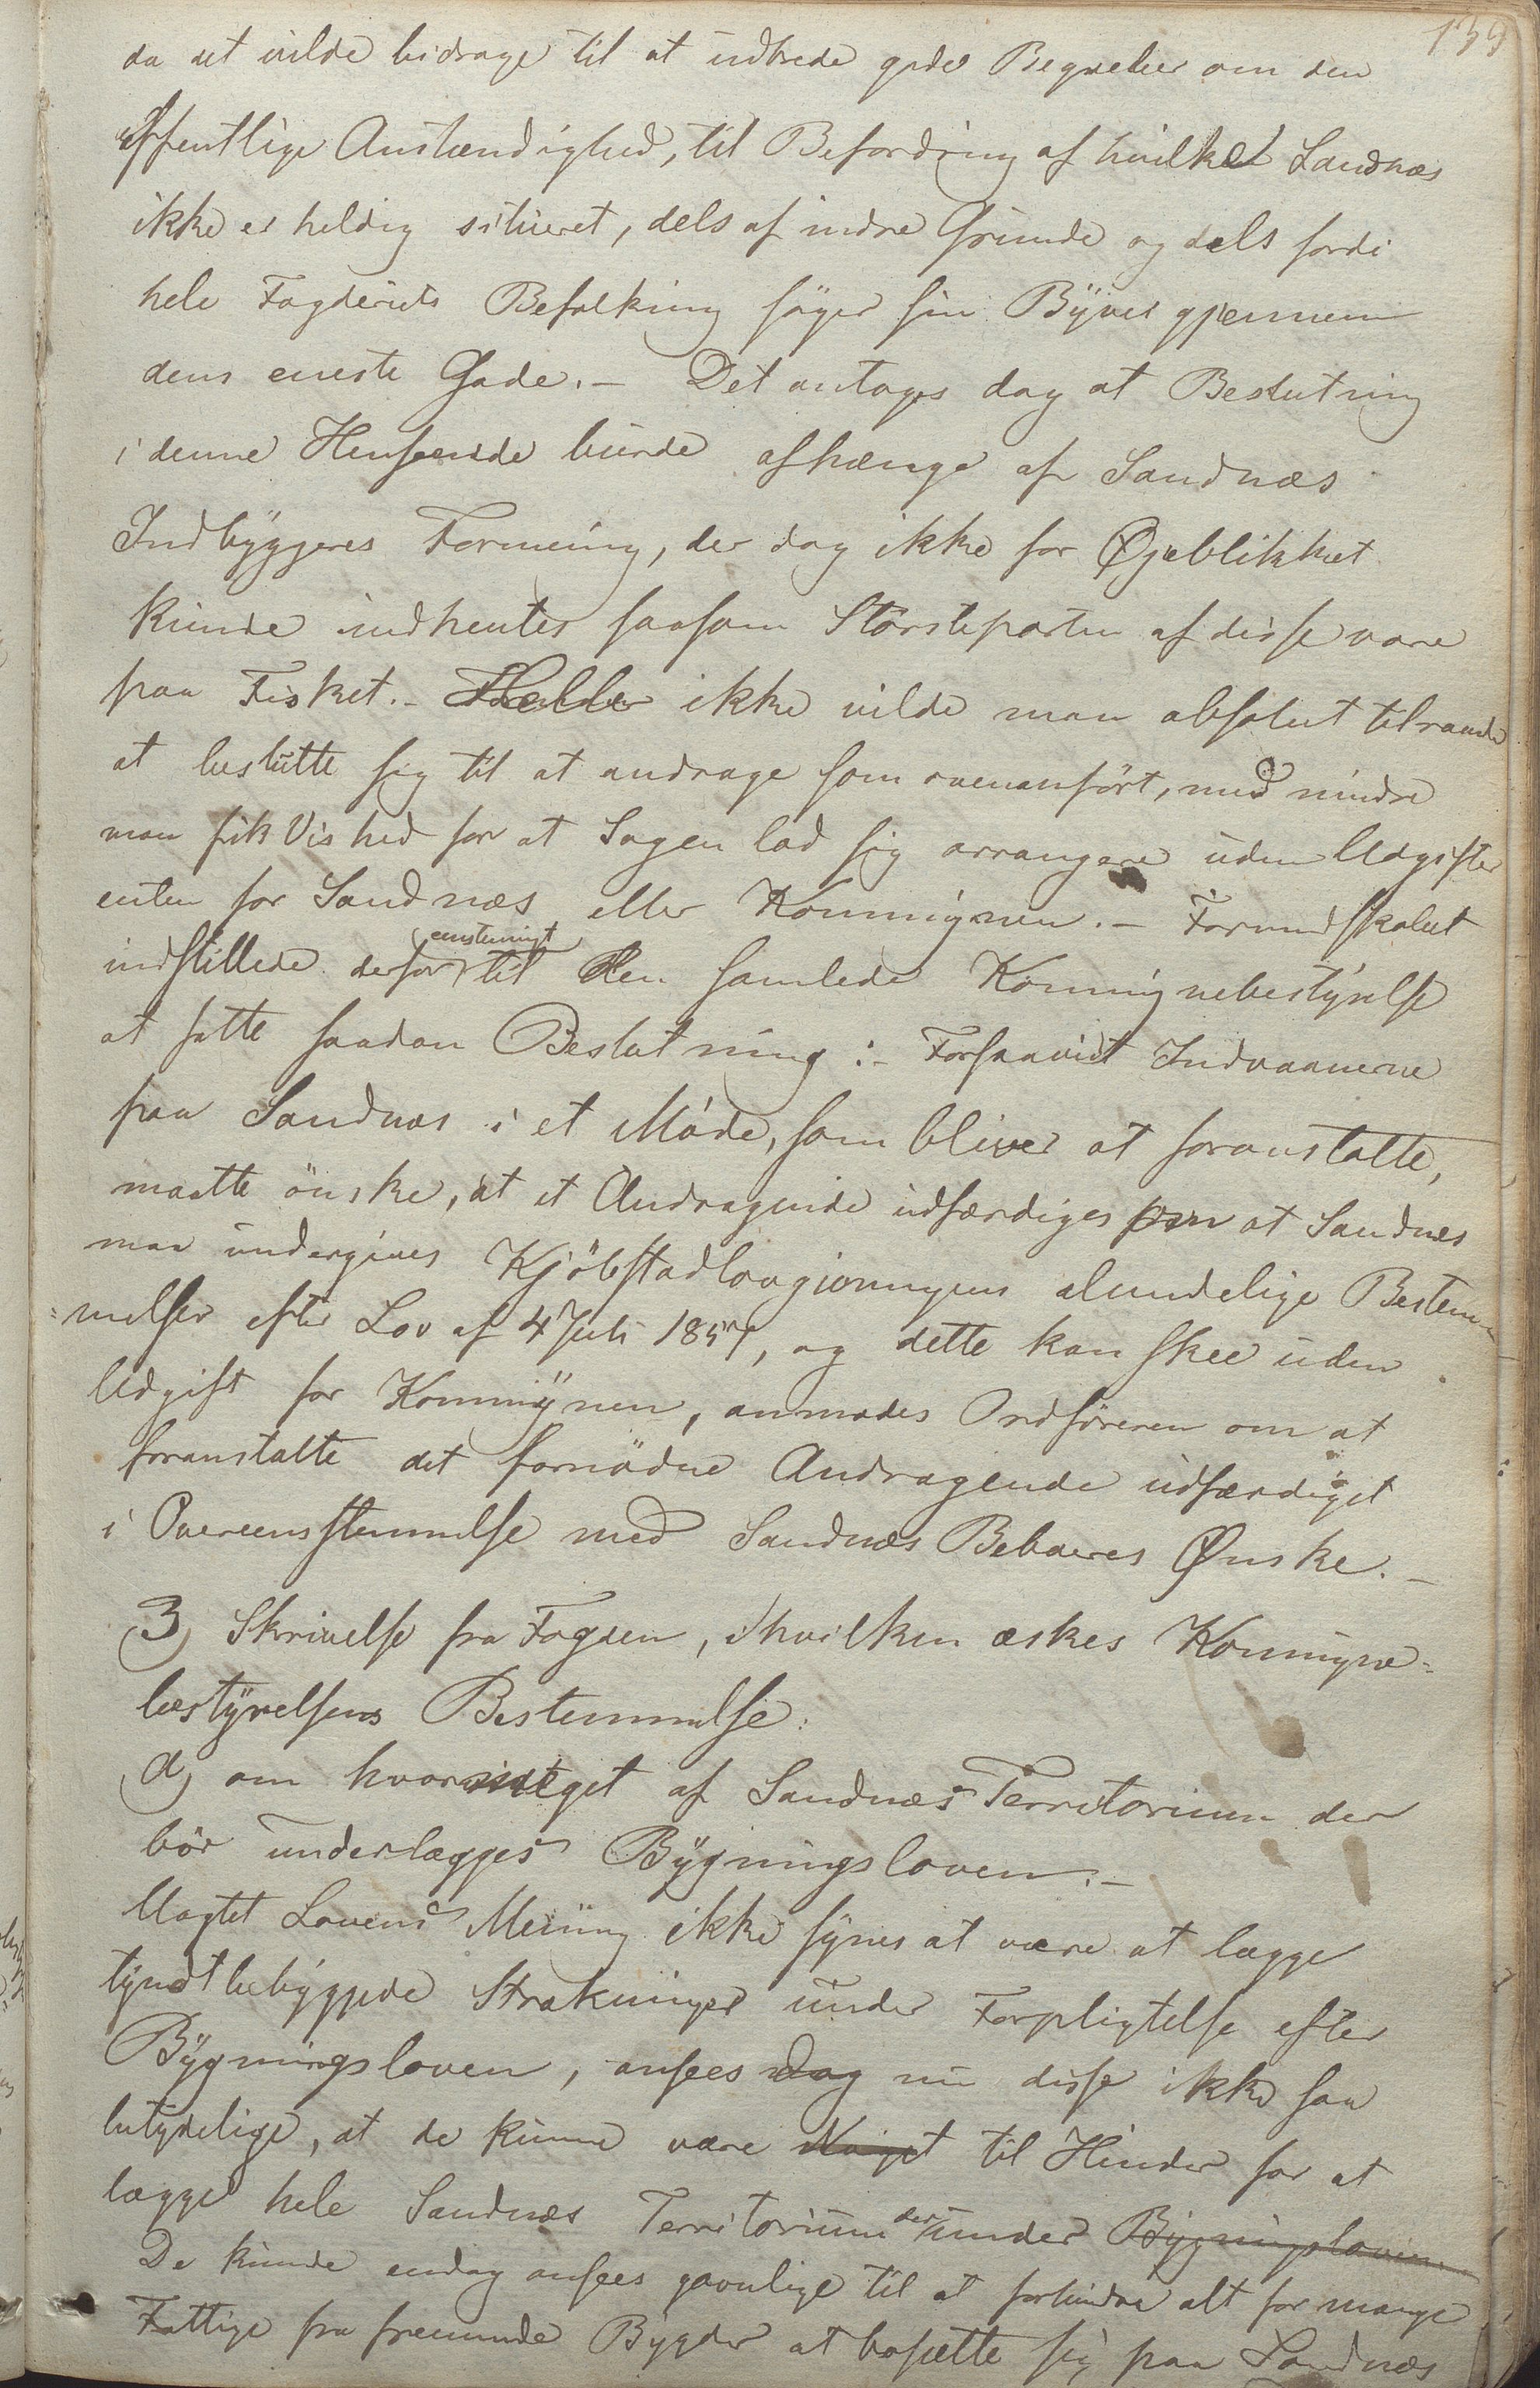 139
da det vilde bidrage til at udbrede gode Begreber om den
offentlige Anstændighed, til Befordring af hvilket Sandnæs
ikke er heldig situeret, dels af indre Grunde og dels fordi
hele Fogderiets Befolkning søger sin Byvei gjennem
dens eneste Gade. – Det antages dog at Beslutning
i denne Henseende burde afhænge af Sandnæs
Indbyggeres Formening, der dog ikke for Øjeblikket
kunde indhentes saasom Størsteparten af disse vare
paa Fisket. – Heller ikke vilde man absolut tilraade
at beslutte sig til at andrage som ovenanført, med mindre
man fik Vished for at Sagen lod sig arrangere uden Udgifter
enten for Sandnæs eller Kommunen. – Formandskabet
indstillede derfor eenstemigt til den samlede Kommunebestyrelse
at fatte saadan Beslutning: – Forsaavidt Indvaanerne
paa Sandnæs i et Møde, som bliver at foranstalte,
maatte ønske, at et Andragende udfærdiges paa at Sandnæs
maa undergives Kjøbstadlovgivningens almindelige Bestem-
=melser efter Lov af 4 Juli 1857, og dette kan skee uden
Udgift for Kommunen, anmodes Ordføreren om at
foranstalte det fornødne Andragende udfærdiget
i Overeensstemmelse med Sandnæs Beboeres Ønske. –
3) Skrivelse fra Fogden, i hvilken æskes Kommune=
bestyrelsens Bestemmelse:
a) om hvormeget af Sandnæs Territorium der
bør underlægges Bygningsloven. –
Uagtet Lovens Mening ikke synes at være at lægge
tyndtbebyggede Strækninger under Forpligtelse efter
Bygningsloven, ansees dog nu disse ikke saa
betydelige, at de kunne være Noget til Hinder for at
lægge hele Sandnæs Territorium der under Bygningsloven.
De kunde endog ansees gavnlige til at forhindre alt for mange
Fattige fra fremmede Bygder at bosætte sig paa Sandnæs